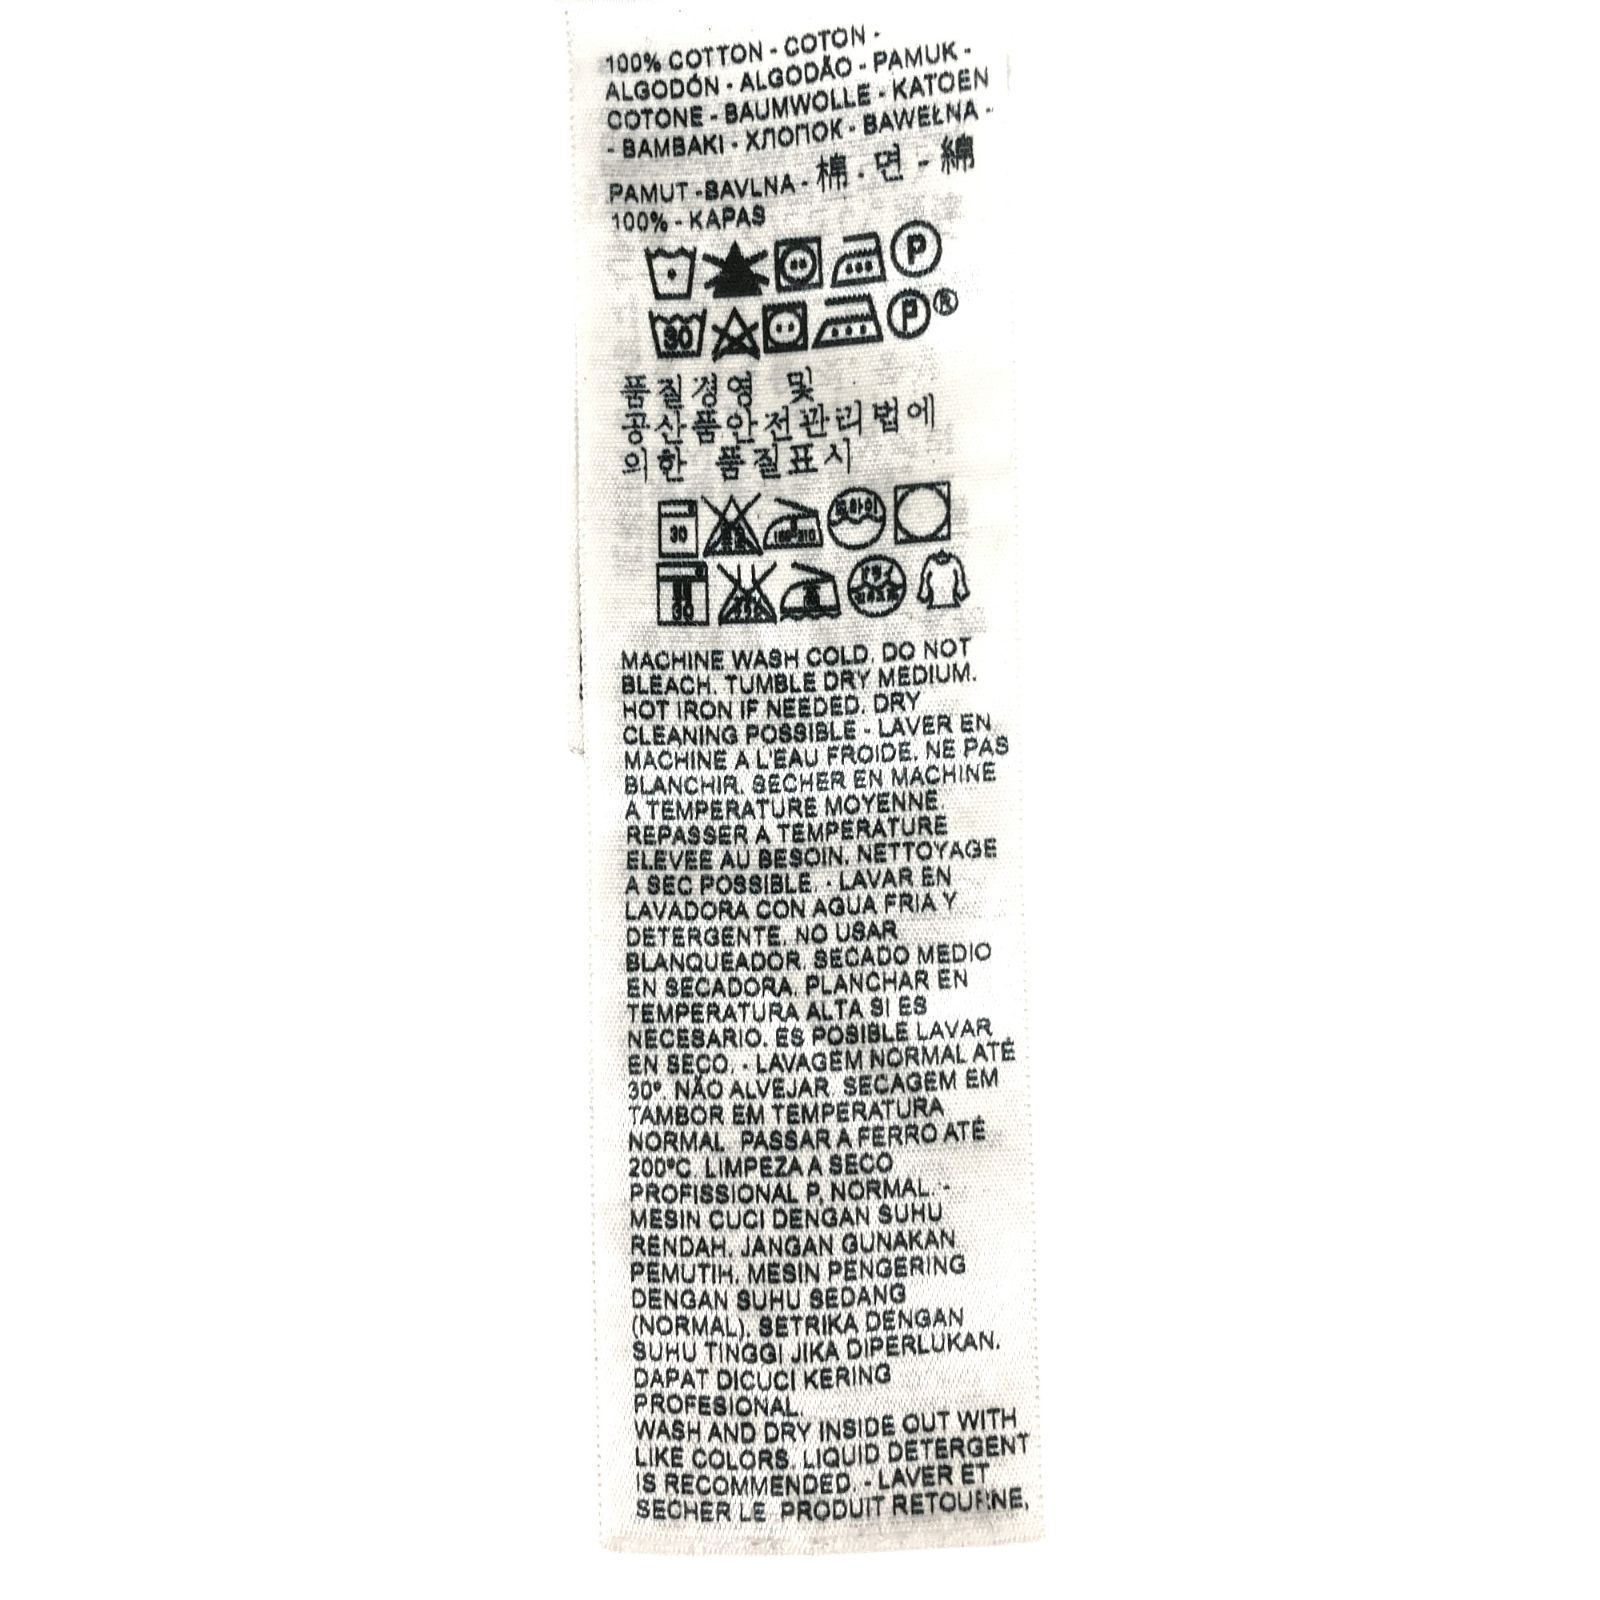 100% COTTON - COTON -
ALGODÓN - ALGODÃO - PAMUK -
COTONE - BAUMWOLLE - KATOEN
- BAMBAKI - ХЛОПОК - BAWEŁNA -
PAMUT -BAVLNA - 棉 - 면 - 綿
100% - KAPAS
P
30 P®
품질경영 및
공산품안전관리법에
의한 품질표시
30 드라이
30
MACHINE WASH COLD. DO NOT
BLEACH. TUMBLE DRY MEDIUM.
HOT IRON IF NEEDED. DRY
CLEANING POSSIBLE - LAVER EN
MACHINE A L'EAU FROIDE. NE PAS
BLANCHIR. SECHER EN MACHINE
A TEMPERATURE MOYENNE.
REPASSER A TEMPERATURE
ELEVEE AU BESOIN. NETTOYAGE
A SEC POSSIBLE. - LAVAR EN
LAVADORA CON AGUA FRIA Y
DETERGENTE. NO USAR
BLANQUEADOR. SECADO MEDIO
EN SECADORA. PLANCHAR EN
TEMPERATURA ALTA SI ES
NECESARIO. ES POSIBLE LAVAR
EN SECO. - LAVAGEM NORMAL ATÉ
30º. NÃO ALVEJAR. SECAGEM EM
TAMBOR EM TEMPERATURA
NORMAL. PASSAR A FERRO ATÉ
200ºC. LIMPEZA A SECO
PROFISSIONAL P, NORMAL. -
MESIN CUCI DENGAN SUHU
RENDAH. JANGAN GUNAKAN
PEMUTIH. MESIN PENGERING
DENGAN SUHU SEDANG
(NORMAL). SETRIKA DENGAN
SUHU TINGGI JIKA DIPERLUKAN.
DAPAT DICUCI KERING
PROFESIONAL.
WASH AND DRY INSIDE OUT WITH
LIKE COLORS. LIQUID DETERGENT
IS RECOMMENDED. - LAVER ET
SECHER LE PRODUIT RETOURNE,